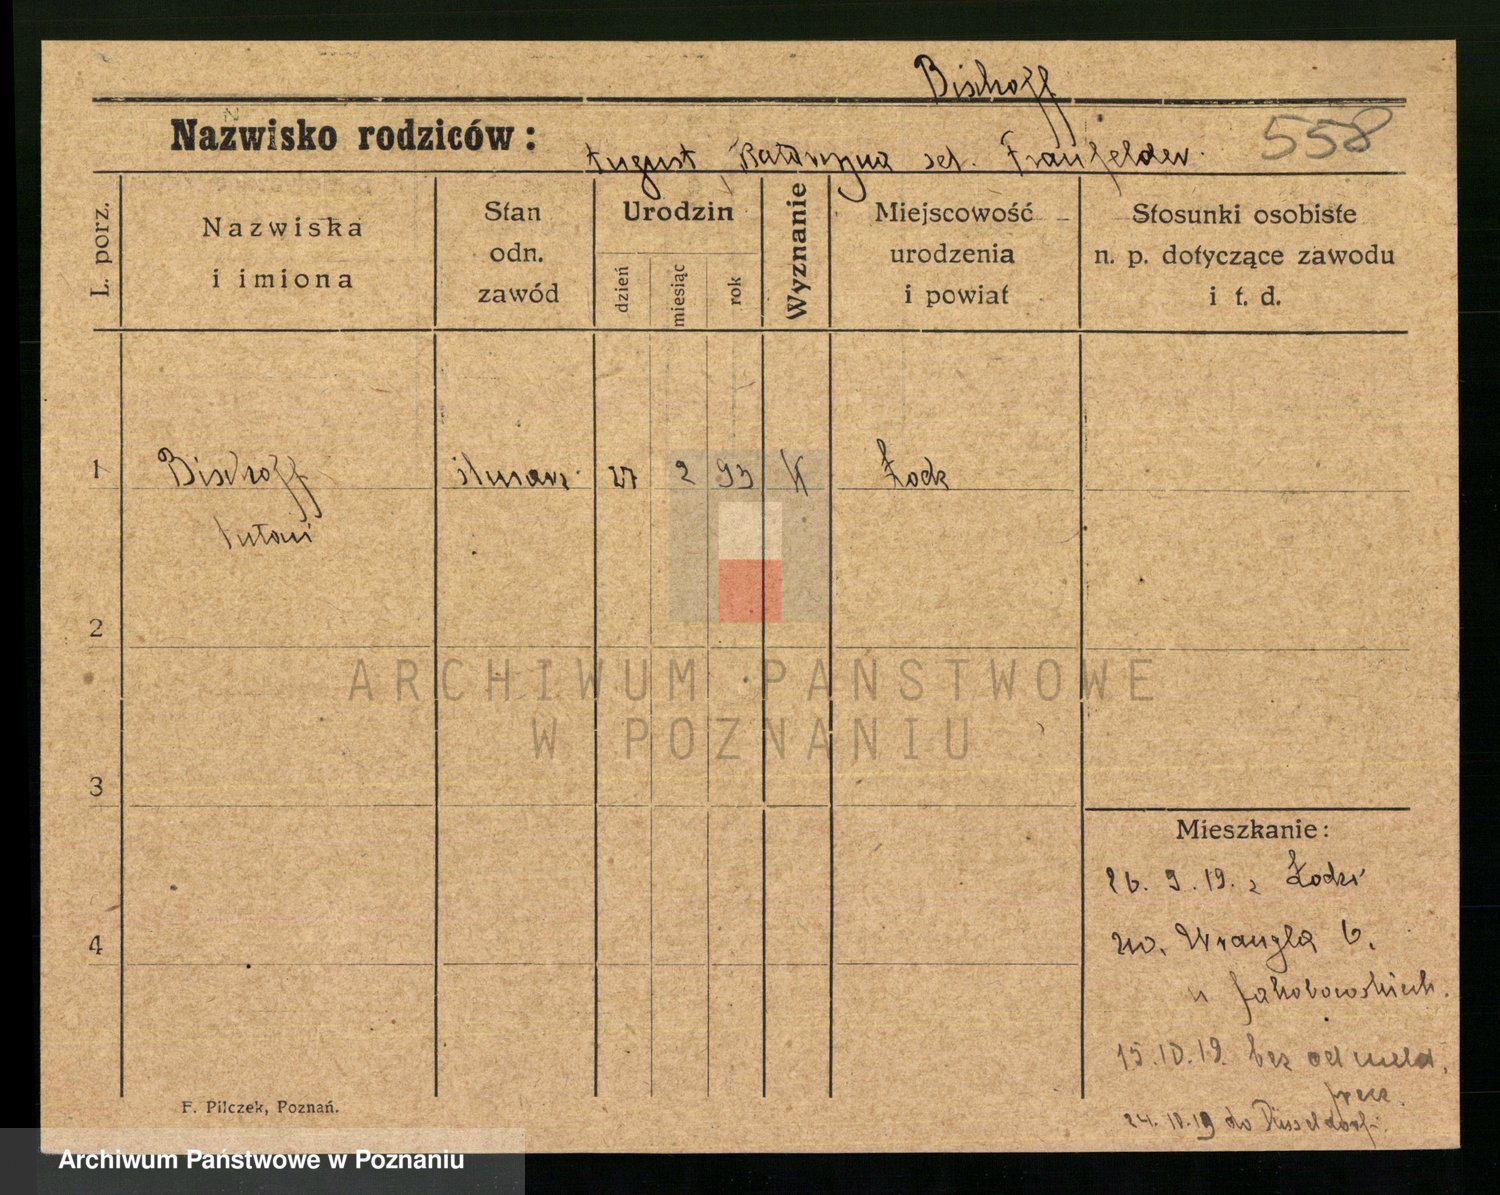 Bischoff
Nazwisko rodziców:
August Katarzyna
558
L. porz.
Nazwiska
i imiona
Stan
odn.
zawód
Urodzin
dzień
miesiąc
rok
Wyznanie
Miejscowość
urodzenia
i powiat
Stosunki osobiste
n. p. dotyczące zawodu
i t. d.
1
Bischoff
ślusarz
27
2
93
K
Łodz
Antoni
2
3
4
Mieszkanie:
26. 9. 19. z Łodzi
Wrangla 6.
u Jakobowskich.
15.10.19. bez odmeld.
precz.
24. 10. 19 do Düsseldorf.
F. Pilczek, Poznań.
ARCHIWUM PAŃSTWOWE
W POZNANIU
Archiwum Państwowe w Poznaniu